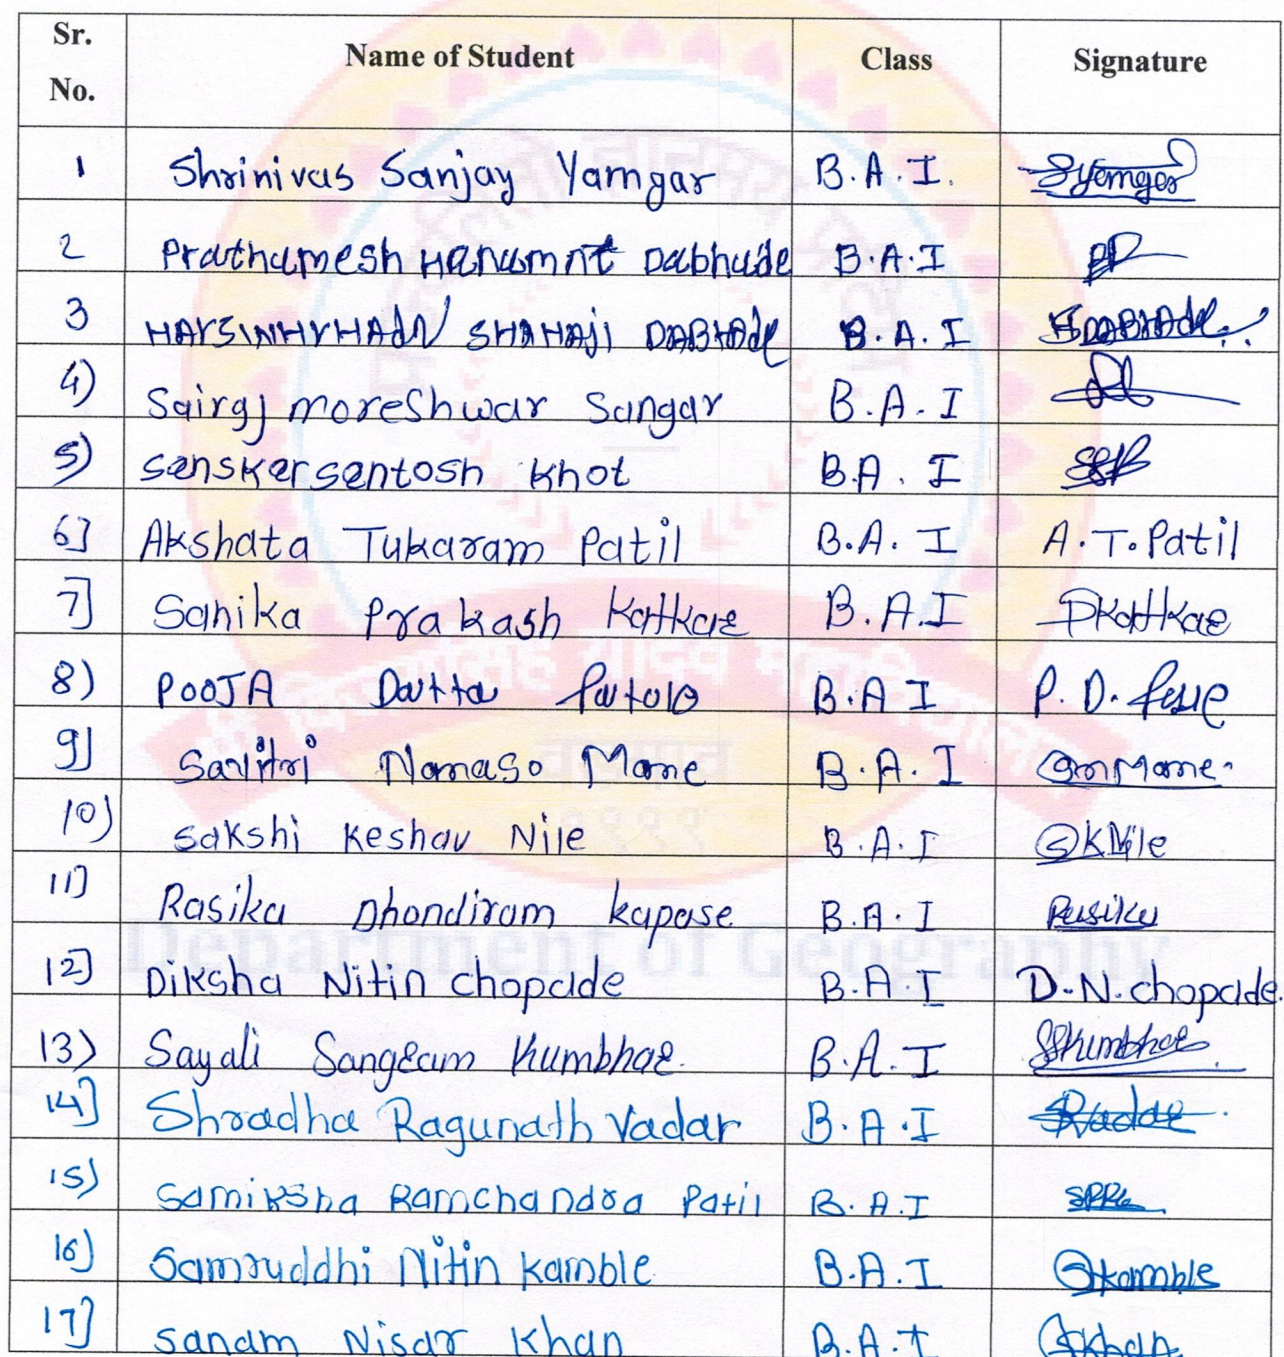 Sr. No. Name of Student Class Signature
1 Shrinivas Sanjay Yamgar B.A.I. SYamgar
2 Prathamesh Hanamnt Dabhade B.A.I
3 SHAHAJI DABHADE B.A.I
4) Sairaj moreshwar Sangar B.A.I
5) Sanskar santosh khot B.A.I
6] Akshata Tukaram Patil B.A.I A.T.Patil
7] Sanika Prakash Katkar B.A.I
8) POOJA Datta B.A I P. D.
9] Savitri Namaso Mane B.A.I
10) sakshi keshav Nile B.A.I SKNile
11] Rasika Dhondiram kapase B.A.I Rasika
12] Diksha Nitin chopade B.A.I D.N.chopade.
13) Sayali Sangram Kumbhar. B.A.I SSKumbhar
14] Shradha Ragunath Vadar B.A.I
15) Samiksha Ramchandra Patil B.A.I
16) Samruddhi Nitin kamble B.A.I Skamble
17] sanam Nisar Khan B.A.I SKhan
Department of Geography